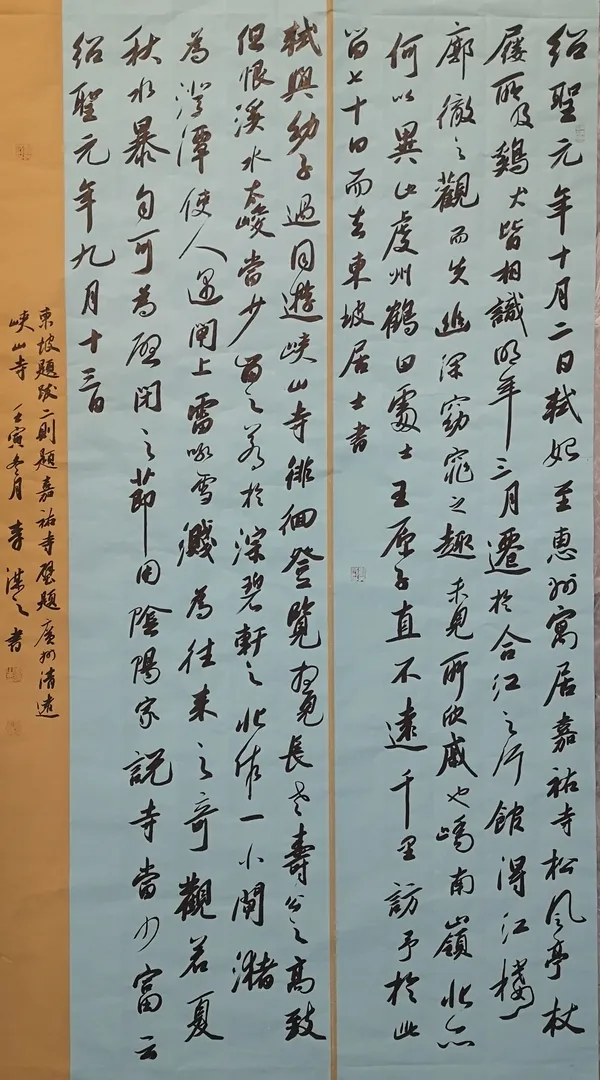 紹聖元年十月二日軾始至惠州寓居嘉祐寺松風亭杖
屨所及鷄犬皆相識明年三月遷於合江之行館得江樓
廓徹之觀而失幽深窈窕之趣未見所欣戚也嶠南嶺北亦
何以異此虔州鶴田處士王原子直不遠千里訪予於此
留七十日而去東坡居士書
軾與幼子過同遊峽山寺徘徊登覽想見長老壽公之高致
但恨溪水太峻當少留之若於淙碧軒之北作一小閘瀦
為澄潭使人過閘上雷吼雪濺為往來之奇觀若夏
秋水暴自可為啟閉之節用陰陽家說寺當少富云
紹聖元年九月十三日
東坡題跋二則題嘉祐寺壁題廣州清遠
峽山寺 壬寅冬月 李 之書